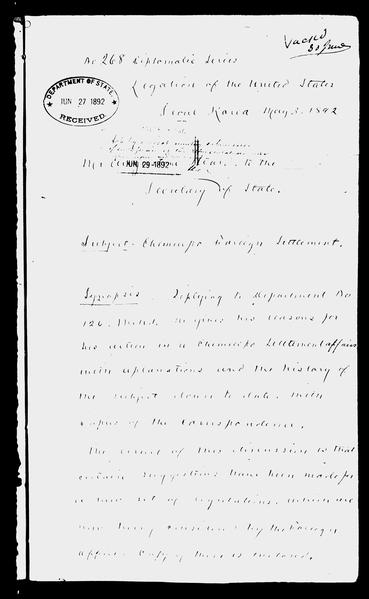 Vacks
30 June
No 268 Diplomatic Series
Legation of the United States
Seoul Korea May 3. 1892
DEPARTMENT OF STATE
JUN 27 1892
RECEIVED
JUN 29 1892
Mr to the
Secretary of State.
Subject. Chemulpo Foreign Settlement.
Synopsis. Replying to Department No
126. he gives his reasons for
his action in a Chemulpo Settlement affairs
with explanations and the history of
the subject down to date. with
copies of the correspondence.
The result of this discussion is that
certain suggestions have been made for
a new set of regulations. which are
now being considered by the Foreign
Copy of these is enclosed.